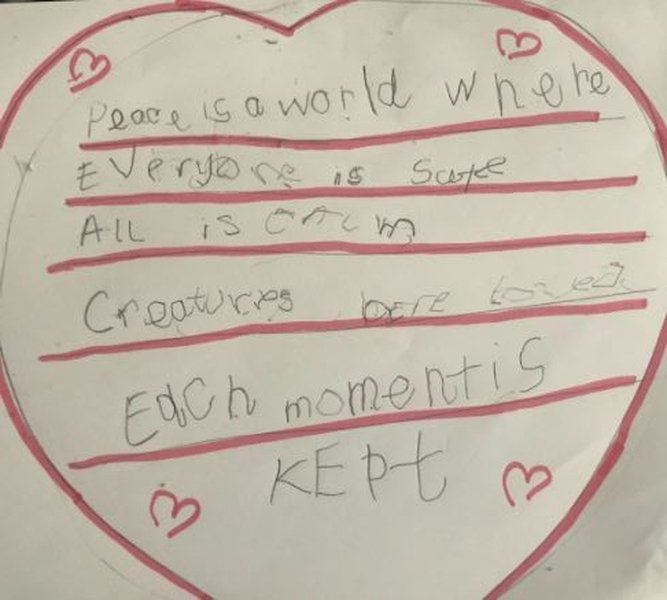 Peace is a world where
EVeryone is safe
ALL is CALM
Creatures are Loved
EaCh moment is
KEpt